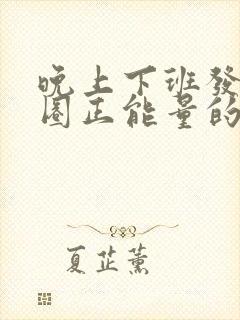 晚上下班發
圈正能量的
夏芷薰